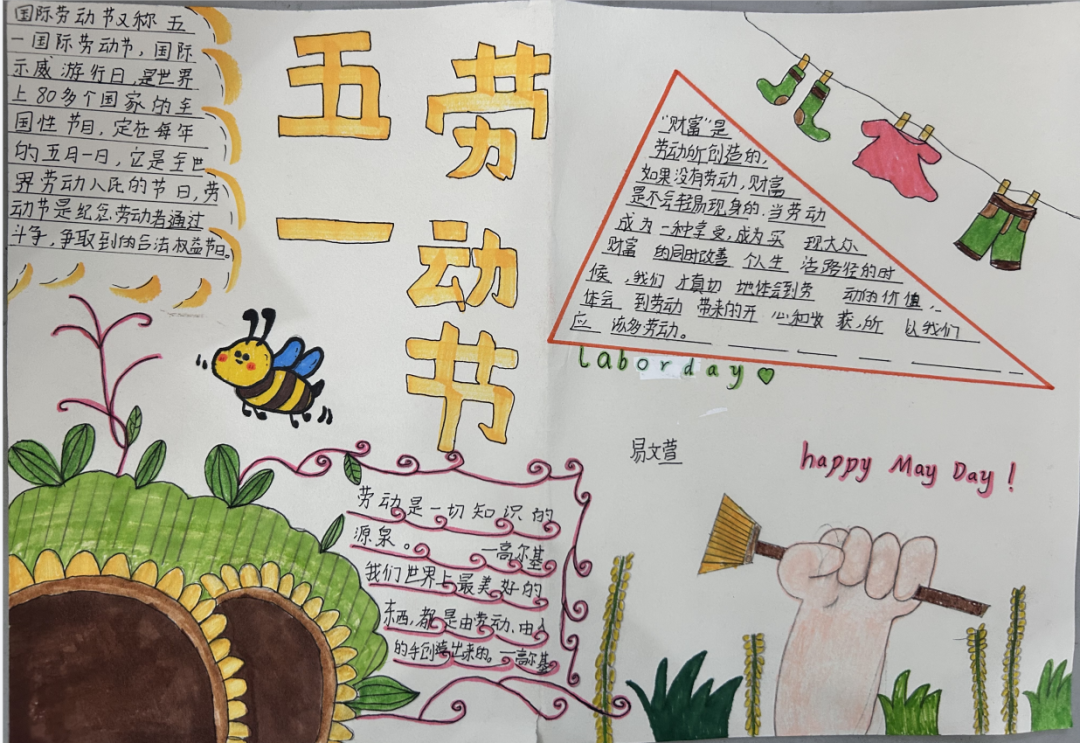 国际劳动节又称五
一国际劳动节，国际
示威游行日，是世界
上80多个国家的全
国性节日，定在每年
的五月一日，它是全世
界劳动人民的节日，劳
动节是纪念劳动者通过
斗争，争取到的合法权益节日。
五一
劳动节
“财富”是
劳动所创造的，
如果没有劳动，财富
是不会轻易现身的．当劳动
成为一种享受，成为实现大众
财富的同时改善个人生活路径的时
候，我们才真切地体会到劳动的价值，
体会到劳动带来的开心和收获，所以我们
应该多劳动。
labor day
易文萱
happy May Day！
劳动是一切知识的
源泉。—高尔基
我们世界上最美好的
东西，都是由劳动、由人
的手创造出来的。—高尔基